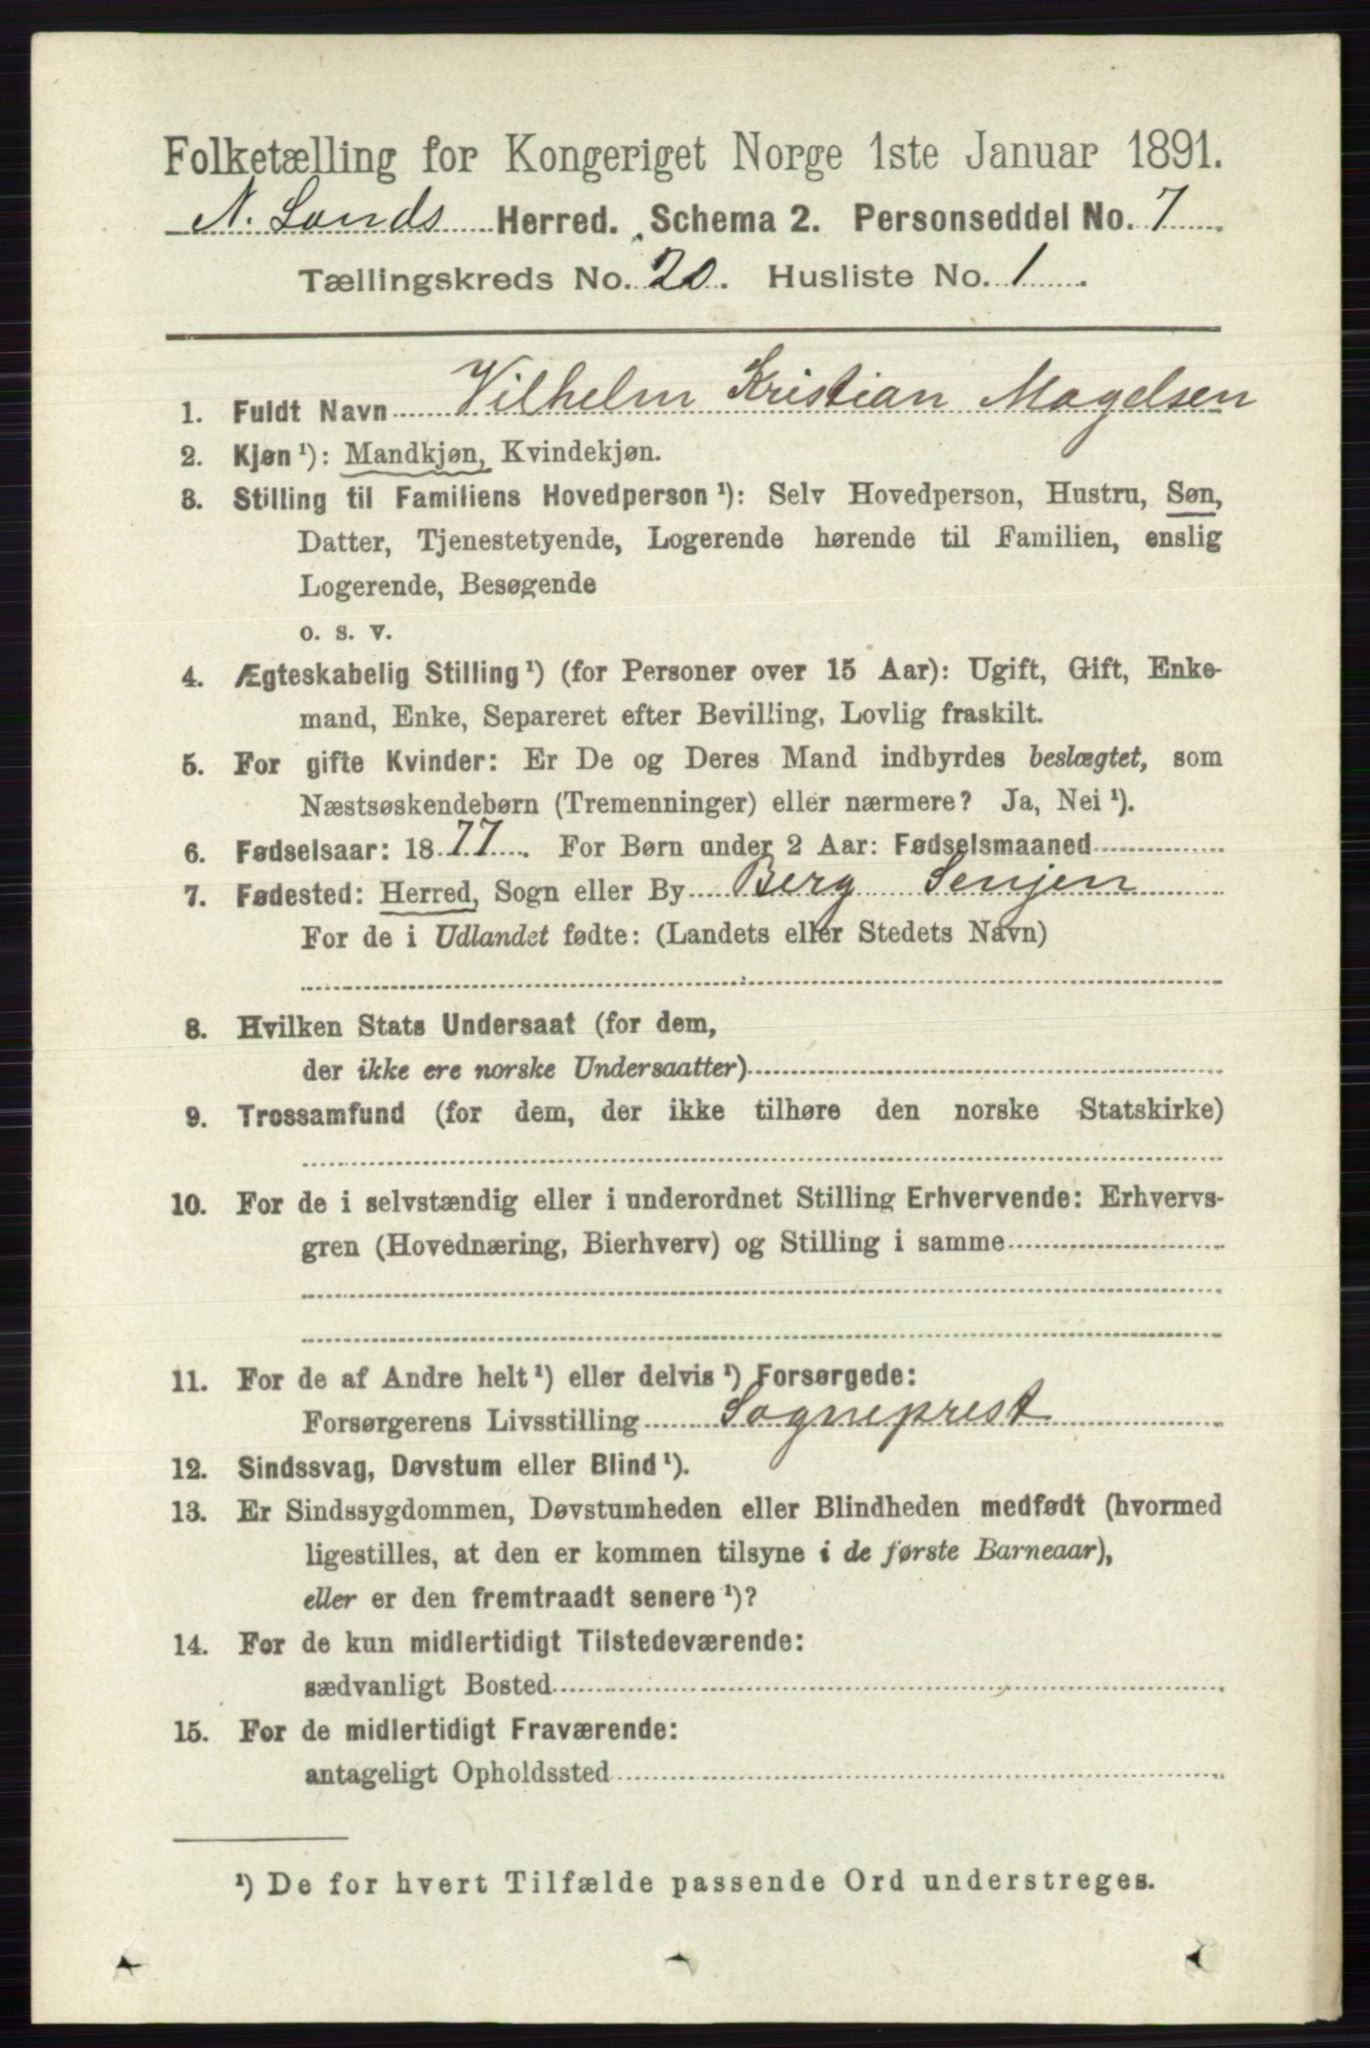 Folketælling for Kongeriget Norge 1ste Januar 1891.
N. Lands Herred. Schema 2. Personseddel No. 7
Tællingskreds No. 20. Husliste No. 1.
1. Fuldt Navn Vilhelm Kristian Magelsen
2. Kjøn¹): Mandkjøn, Kvindekjøn.
3. Stilling til Familiens Hovedperson¹): Selv Hovedperson, Hustru, Søn,
Datter, Tjenestetyende, Logerende hørende til Familien, enslig
Logerende, Besøgende
o. s. v.
4. Ægteskabelig Stilling¹) (for Personer over 15 Aar): Ugift, Gift, Enke-
mand, Enke, Separeret efter Bevilling, Lovlig fraskilt.
5. For gifte Kvinder: Er De og Deres Mand indbyrdes beslægtet, som
Næstsøskendebørn (Tremenninger) eller nærmere? Ja, Nei¹).
6. Fødselsaar: 1877. For Børn under 2 Aar: Fødselsmaaned
7. Fødested: Herred, Sogn eller By Berg Senjen
For de i Udlandet fødte: (Landets eller Stedets Navn)
8. Hvilken Stats Undersaat (for dem,
der ikke ere norske Undersaatter)
9. Trossamfund (for dem, der ikke tilhøre den norske Statskirke)
10. For de i selvstændig eller i underordnet Stilling Erhvervende: Erhvervs-
gren (Hovednæring, Bierhverv) og Stilling i samme
11. For de af Andre helt¹) eller delvis¹) Forsørgede:
Forsørgerens Livsstilling Sogneprest
12. Sindssvag, Døvstum eller Blind¹).
13. Er Sindssygdommen, Døvstumheden eller Blindheden medfødt (hvormed
ligestilles, at den er kommen tilsyne i de første Barneaar),
eller er den fremtraadt senere¹)?
14. For de kun midlertidigt Tilstedeværende:
sædvanligt Bosted
15. For de midlertidigt Fraværende:
antageligt Opholdssted
¹) De for hvert Tilfælde passende Ord understreges.